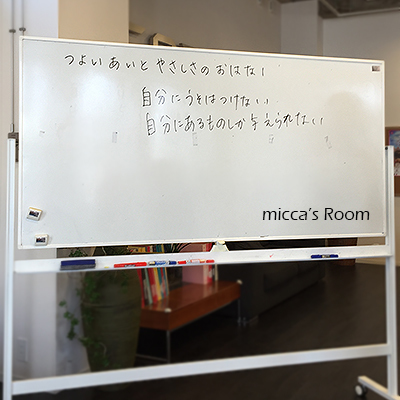 つよいあいとやさしさのおはなし
自分にうそはつけない
自分にあるものしか与えられない
micca's Room